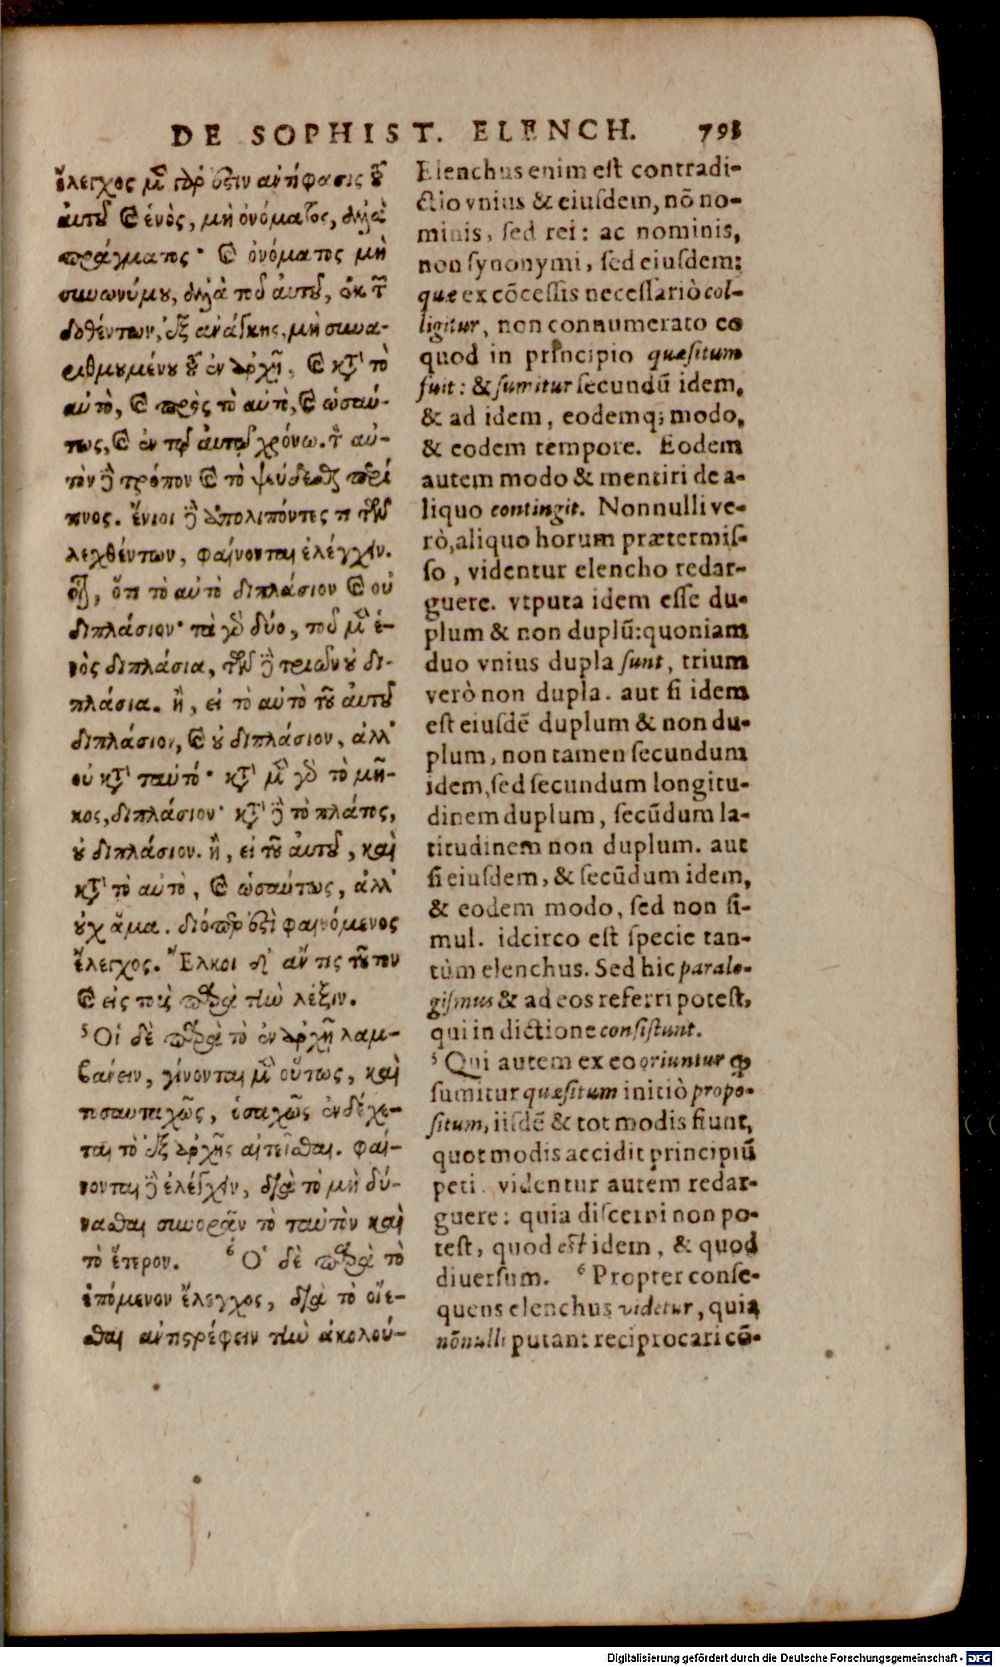 DE SOPHIST. ELENCH. 791
ἔλεγχος μὲν γάρ ἐστιν ἀντίφασις τοῦ
αὐτοῦ καὶ ἑνὸς, μὴ ὀνόματος, ἀλλὰ
πράγματος· καὶ ὀνόματος μὴ
συνωνύμου, ἀλλὰ τοῦ αὐτοῦ, ἐκ τῶν
δοθέντων, ἐξ ἀνάγκης, μὴ συνα-
ριθμουμένου τοῦ ἐν ἀρχῇ, καὶ κατὰ τὸ
αὐτὸ, καὶ πρὸς τὸ αὐτὸ, καὶ ὡσαύ-
τως, καὶ ἐν τῷ αὐτῷ χρόνῳ. τὸν αὐ-
τὸν δὲ τρόπον καὶ τὸ ψεύδεσθαι περί
τινος. ἔνιοι δὲ ἀπολιπόντες τι τῶν
λεχθέντων, φαίνονται ἐλέγχειν.
οἷον, ὅτι τὸ αὐτὸ διπλάσιον καὶ οὐ
διπλάσιον· τὰ γὰρ δύο, τοῦ μὲν ἑ-
νὸς διπλάσια, τῶν δὲ τριῶν οὐ δι-
πλάσια. ἢ, εἰ τὸ αὐτὸ τοῦ αὐτοῦ
διπλάσιον, καὶ οὐ διπλάσιον, ἀλλ'
οὐ κατὰ ταὐτό· κατὰ μὲν γὰρ τὸ μῆ-
κος, διπλάσιον· κατὰ δὲ τὸ πλάτος,
οὐ διπλάσιον. ἢ, εἰ τοῦ αὐτοῦ, καὶ
κατὰ τὸ αὐτὸ, καὶ ὡσαύτως, ἀλλ'
οὐχ ἅμα. διόπερ ἐστὶ φαινόμενος
ἔλεγχος. Ἕλκοι δ' ἄν τις τοῦτον
καὶ εἰς τοὺς παρὰ τὴν λέξιν.
⁵Οἱ δὲ παρὰ τὸ ἐν ἀρχῇ λαμ-
βάνειν, γίνονται μὲν οὕτως, καὶ
τοσαυταχῶς, ὁσαχῶς ἐνδέχε-
ται τὸ ἐξ ἀρχῆς αἰτεῖσθαι. φαί-
νονται δὲ ἐλέγχειν, διὰ τὸ μὴ δύ-
νασθαι συνορᾶν τὸ ταὐτὸν καὶ
τὸ ἕτερον. ⁶Ὁ δὲ παρὰ τὸ
ἑπόμενον ἔλεγχος, διὰ τὸ οἴε-
σθαι ἀντιστρέφειν τὴν ἀκολού-
Elenchus enim est contradi-
ctio vnius & eiusdem, nō no-
minis, sed rei: ac nominis,
non synonymi, sed eiusdem:
quæ ex cōcessis necessariò col-
ligitur, non connumerato eo
quod in principio quæsitum
fuit: & sumitur secundū idem,
& ad idem, eodemq; modo,
& eodem tempore. Eodem
autem modo & mentiri de a-
liquo contingit. Nonnulli ve-
rò, aliquo horum prætermis-
so, videntur elencho redar-
guere. vtputa idem esse du-
plum & non duplū: quoniam
duo vnius dupla sunt, trium
verò non dupla. aut si idem
est eiusdē duplum & non du-
plum, non tamen secundum
idem, sed secundum longitu-
dinem duplum, secūdum la-
titudinem non duplum. aut
si eiusdem, & secūdum idem,
& eodem modo, sed non si-
mul. idcirco est specie tan-
tùm elenchus. Sed hic paralo-
gismus & ad eos referri potest,
qui in dictione consistunt.
⁵ Qui autem ex eo oriuntur q̄
sumitur quæsitum initiò propo-
situm, iisdē & tot modis fiunt,
quot modis accidit principiū
peti. videntur autem redar-
guere: quia discerni non po-
test, quod est idem, & quod
diuersum. ⁶ Propter conse-
quens elenchus videtur, quia
nōnulli putant reciprocari cō-
Digitalisierung gefördert durch die Deutsche Forschungsgemeinschaft - DFG